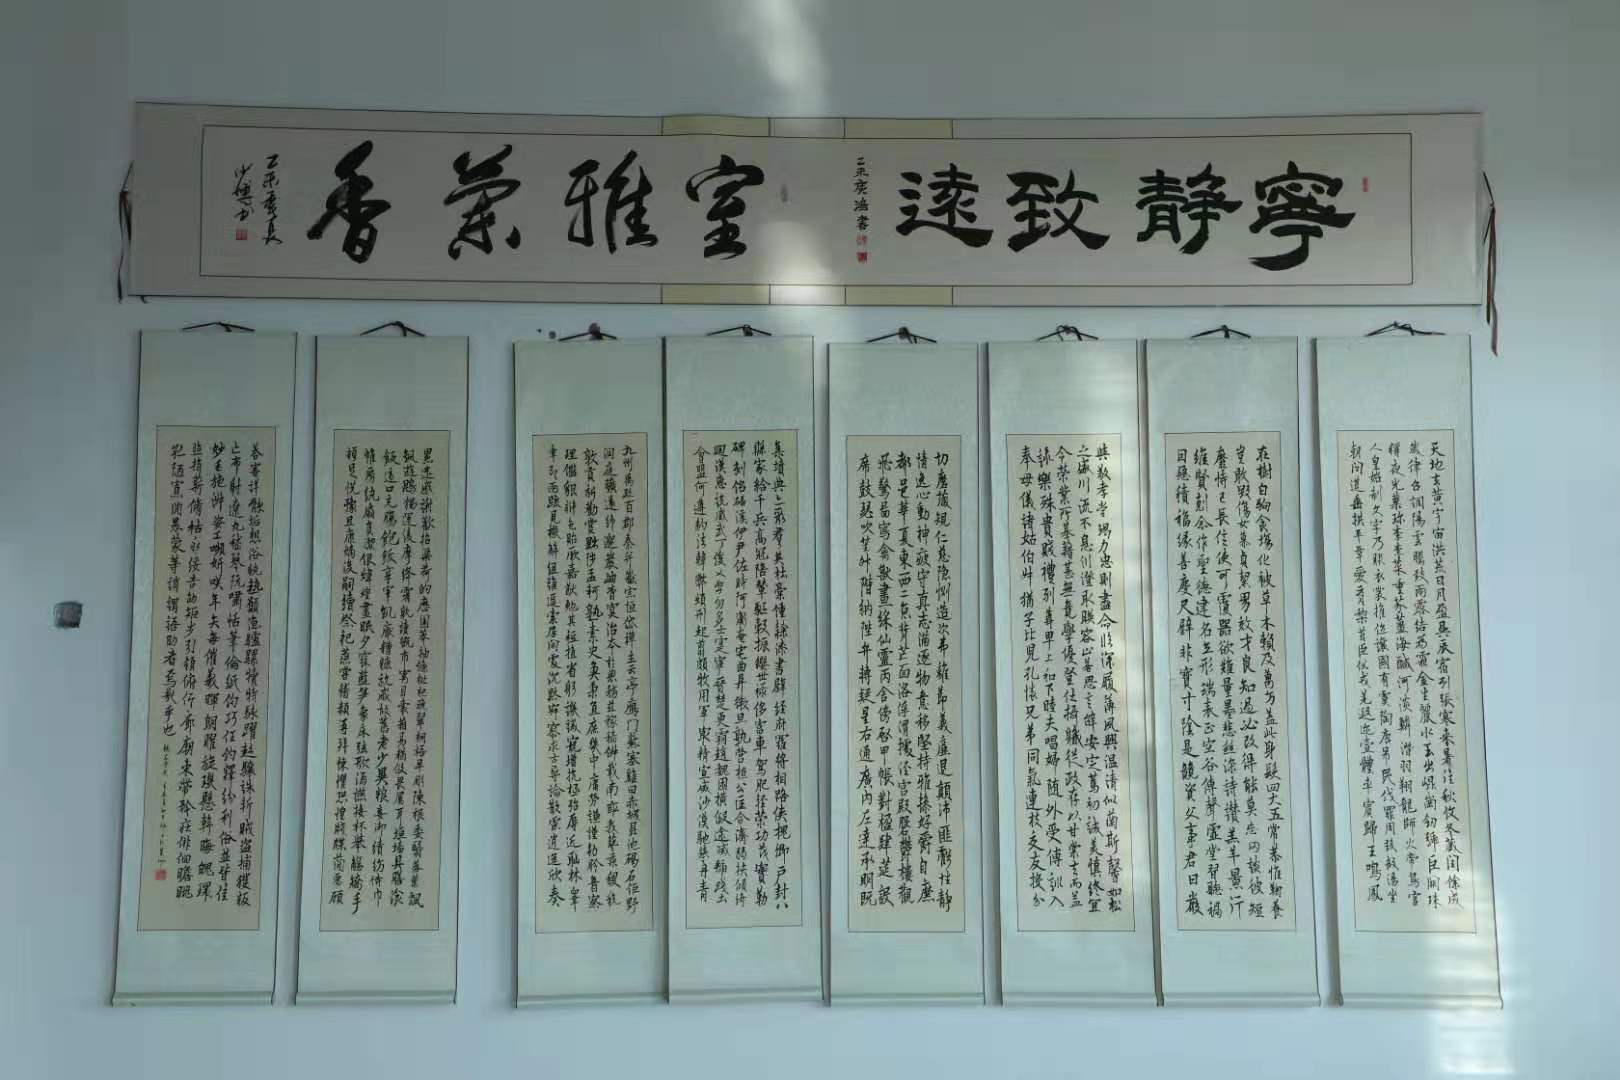 寧静致遠
乙未庚鴻書
室雅蘭香
乙未春月
少博書
天地玄黃宇宙洪荒日月盈昃辰宿列張寒來暑往秋收冬藏閏餘成
歲律召調陽雲騰致雨露結為霜金生麗水玉出崐崗劍號巨闕珠
稱夜光菓珍李柰菜重芥薑海鹹河淡鱗潛羽翔龍師火帝鳥官
人皇始制文字乃服衣裳推位讓國有虞陶唐吊民伐罪周發殷湯坐
朝問道垂拱平章愛育黎首臣伏戎羌遐邇壹體率賓歸王鳴鳳
在樹白駒食場化被草木賴及萬方蓋此身髮四大五常恭惟鞠養
豈敢毀傷女慕貞絜男效才良知過必改得能莫忘罔談彼短
靡恃己長信使可覆器欲難量墨悲絲染詩讚羔羊景行
維賢剋念作聖德建名立形端表正空谷傳聲虛堂習聽禍
因惡積福緣善慶尺璧非寶寸陰是競資父事君曰嚴
與敬孝當竭力忠則盡命臨深履薄夙興溫清似蘭斯馨如松
之盛川流不息川澄取映容止若思言辭安定篤初誠美慎終宜
令榮業所基籍甚無竟學優登仕攝職從政存以甘棠去而益
詠樂殊貴賤禮別尊卑上和下睦夫唱婦隨外受傅訓入
奉母儀諸姑伯叔猶子比兒孔懷兄弟同氣連枝交友投分
切磨箴規仁慈隱惻造次弗離節義廉退顛沛匪虧性靜
情逸心動神疲守真志滿逐物意移堅持雅操好爵自縻
都邑華夏東西二京背芒面洛浮渭據涇宮殿盤鬱樓觀
飛驚圖寫禽獸畫綵仙靈丙舍傍啟甲帳對楹肆筵設
席鼓瑟吹笙升階納陛弁轉疑星右通廣內左達承明既
集墳典亦聚群英杜稾鍾隸漆書壁經府羅將相路俠槐卿戶封八
縣家給千兵高冠陪輦驅轂振纓世祿侈富車駕肥輕策功茂實勒
碑刻銘磻溪伊尹佐時阿衡奄宅曲阜微旦孰營桓公匡合濟弱扶傾綺
迴漢惠說感武丁俊乂密勿多士寔寧晉楚更霸趙魏困橫假途滅虢踐土
會盟何遵約法韓弊煩刑起翦頗牧用軍最精宣威沙漠馳譽丹青
九州禹跡百郡秦并嶽宗恆岱禪主云亭雁門紫塞雞田赤城昆池碣石鉅野
洞庭曠遠綿邈巖岫杳冥治本於農務茲稼穡俶載南畝我藝黍稷稅
熟貢新勸賞黜陟孟軻敦素史魚秉直庶幾中庸勞謙謹敕聆音察
理鑑貌辨色貽厥嘉猷勉其祗植省躬譏誡寵增抗極殆辱近恥林皋
幸即兩疏見機解組誰逼索居閒處沉默寂寥求古尋論散慮逍遙欣奏
累遣慼謝歡招渠荷的歷園莽抽條枇杷晚翠梧桐早凋陳根委翳落葉飄
颻遊鵾獨運凌摩絳霄耽讀翫市寓目囊箱易輶攸畏屬耳垣牆具膳餐
飯適口充腸飽飫烹宰飢厭糟糠親戚故舊老少異糧妾御績紡侍巾
帷房紈扇圓潔銀燭煒煌晝眠夕寐藍筍象床弦歌酒讌接杯舉觴矯手
頓足悅豫且康嫡後嗣續祭祀蒸嘗稽顙再拜悚懼恐惶牋牒簡要顧
答審詳骸垢想浴執熱願涼驢騾犢特駭躍超驤誅斬賊盜捕獲叛
亡布射遼丸嵇琴阮嘯恬筆倫紙鈞巧任釣釋紛利俗並皆佳
妙毛施淑姿工顰妍笑年矢每催羲暉朗曜旋璣懸斡晦魄環
照指薪修祜永綏吉劭矩步引領俯仰廊廟束帶矜莊徘徊瞻眺
孤陋寡聞愚蒙等誚謂語助者焉哉乎也